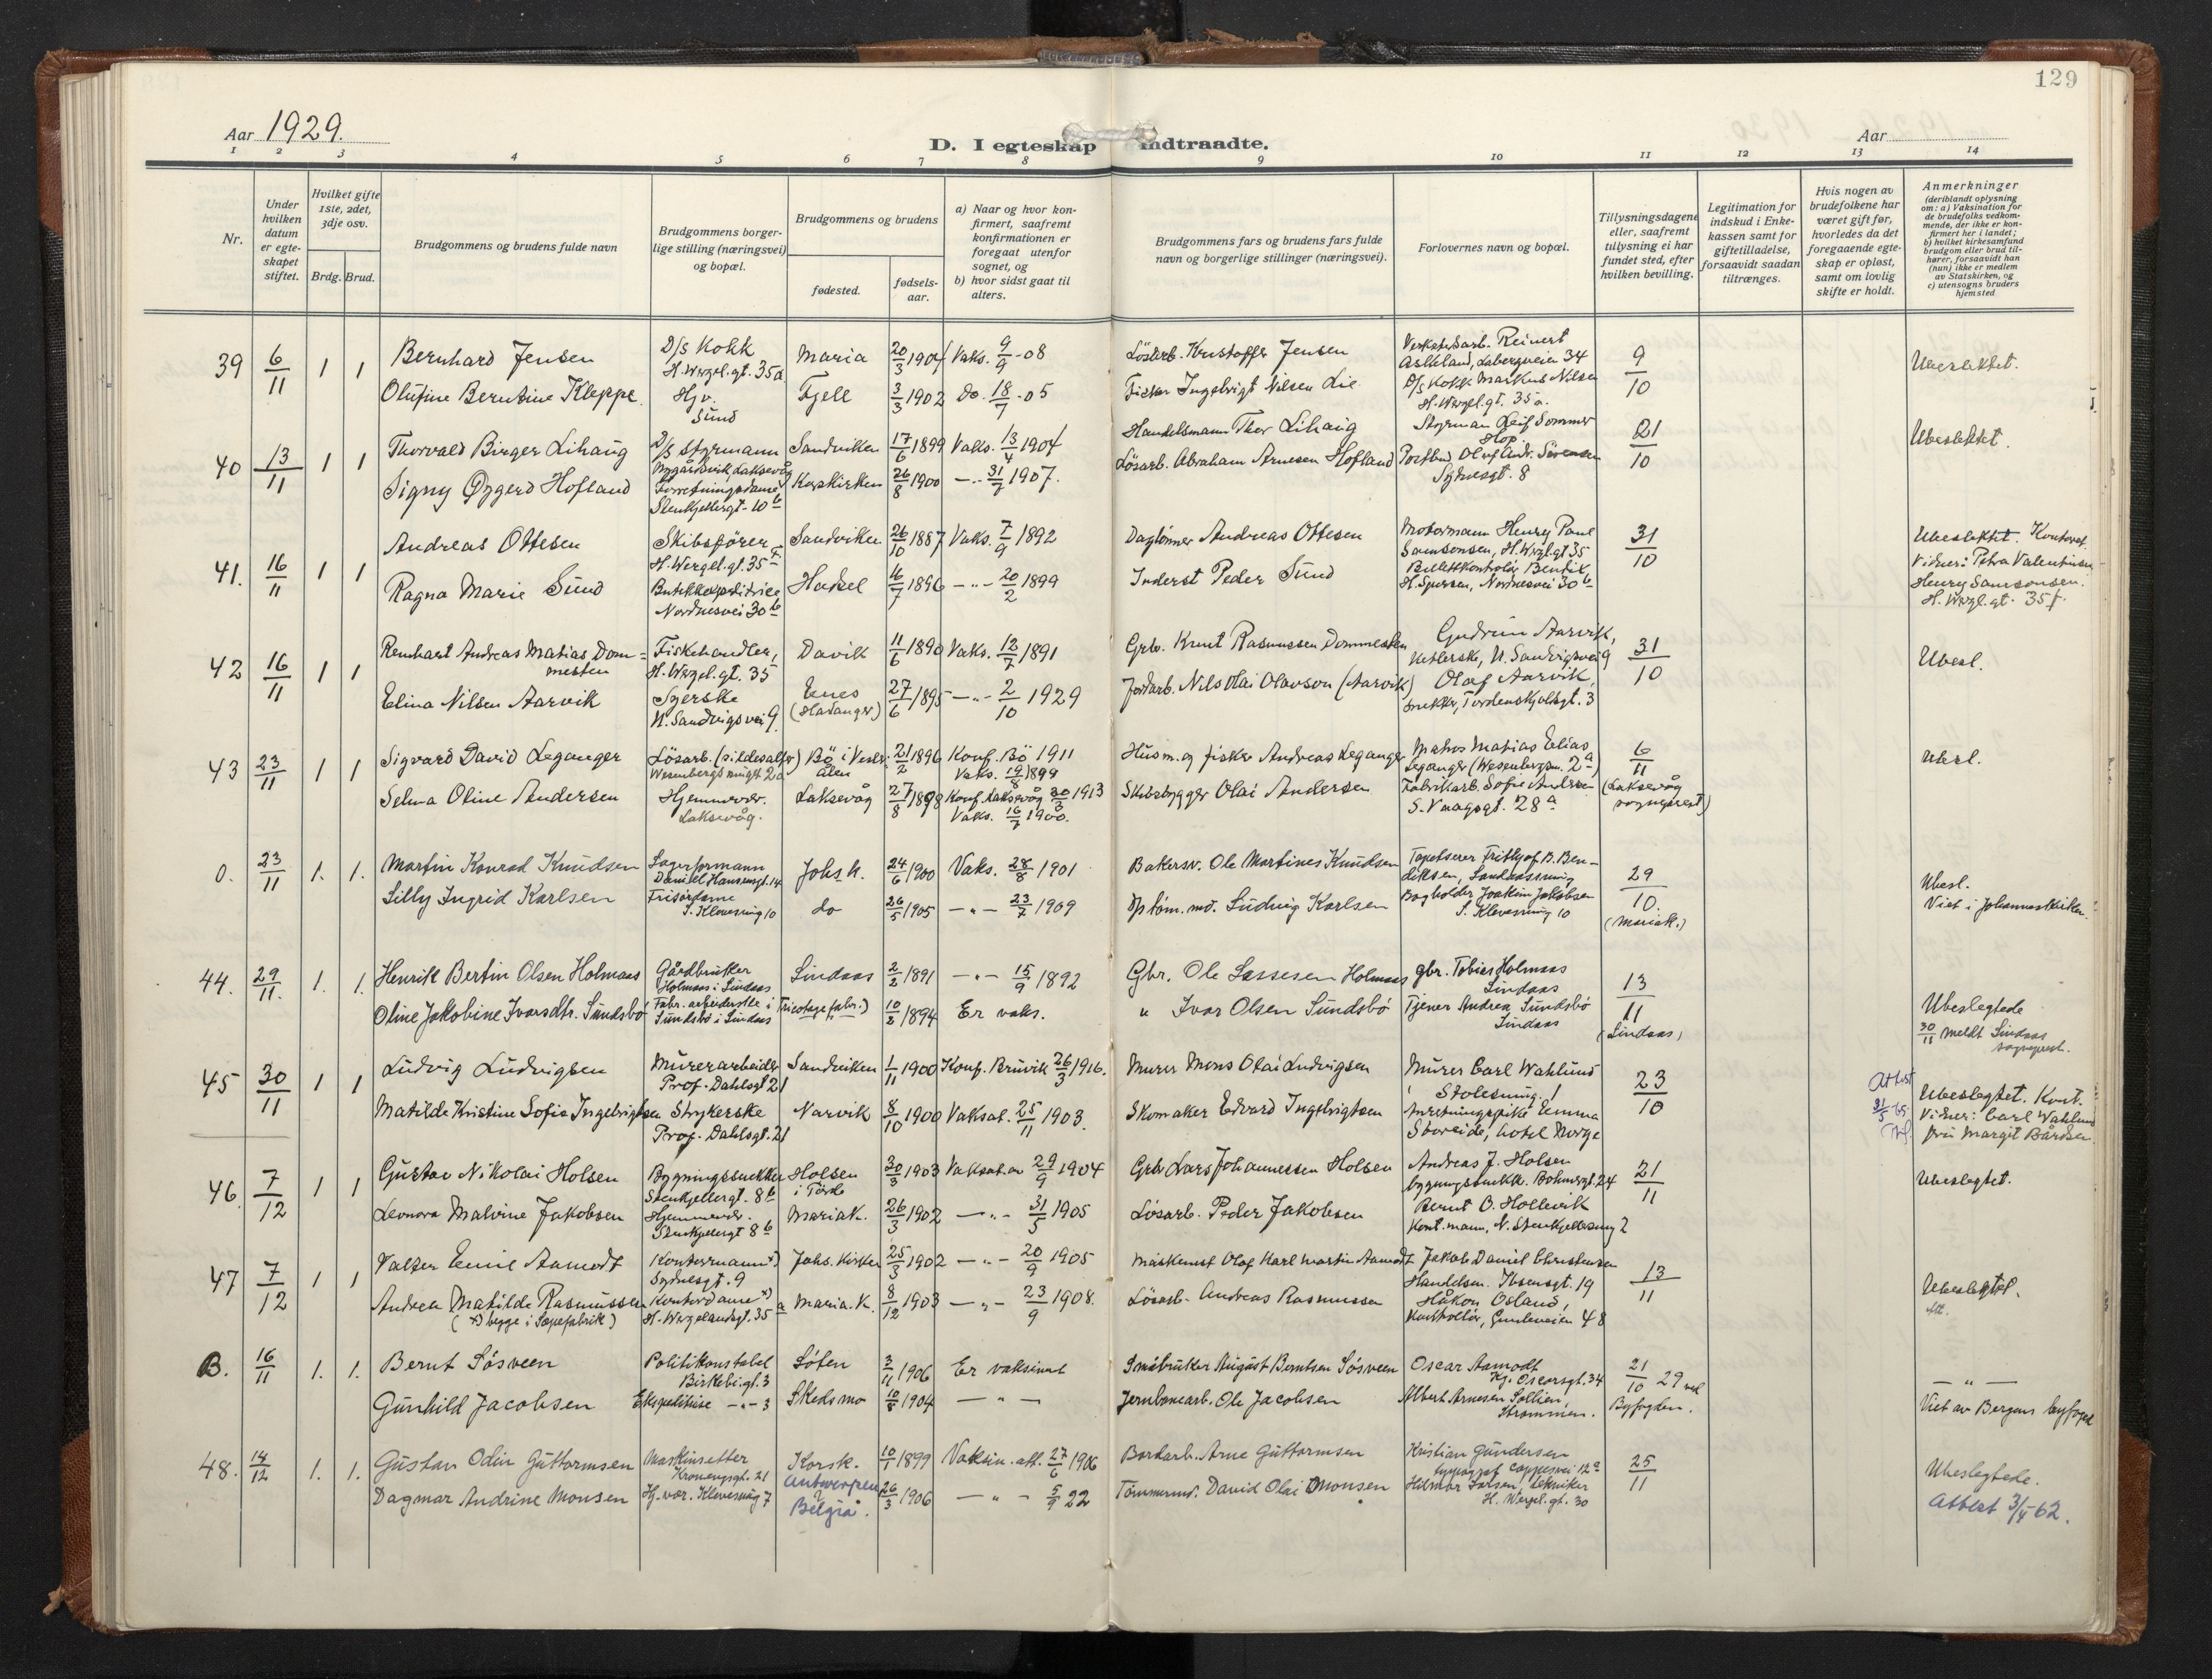 129
Aar 1929.
D. I egteskap indtraadte.
Aar
1 2 3 4 5 6 7 8 9 10 11 12 13 14
Nr.
Under hvilken datum er egteskapet stiftet.
Hvilket gifte 1ste, 2det, 3dje osv.
Brdg. Brud.
Brudgommens og brudens fulde navn
Brudgommens borgerlige stilling (næringsvei) og bopæl.
Brudgommens og brudens
fødested.
fødselsaar.
a) Naar og hvor konfirmert, saafremt konfirmationen er foregaat utenfor sognet, og
b) hvor sidst gaat til alters.
Brudgommens fars og brudens fars fulde navn og borgerlige stillinger (næringsvei).
Forlovernes navn og bopæl.
Tillysningsdagene eller, saafremt tillysning ei har fundet sted, efter hvilken bevilling.
Legitimation for indskud i Enkekassen samt for giftetilladelse, forsaavidt saadan tiltrænges.
Hvis nogen av brudefolkene har været gift før, hvorledes da det foregaaende egteskap er opløst, samt om lovlig skifte er holdt.
Anmerkninger (deriblandt oplysning om: a) Vaksination for de brudefolks vedkommende, der ikke er konfirmert her i landet; b) hvilket kirkesamfund brudgom eller brud tilhører, forsaavidt han (hun) ikke er medlem av Statskirken, og c) utensogns bruders hjemsted
39 6/11 1 1 Bernhard Jensen D/s Kokk H. Wergel. gt. 35a Maria 20/3 1907 Vaks. 9/9-08 Løsarb. Kristoffer Jensen Verkstedsarb. Reinert Askeland, 34 9/10 Ubeslektet.
Olufine Berntine Kleppe Hjv. Sund Fjell 3/3 1902 Do. 18/7-05 Fisker Ingebrigt Nilsen Lie D/s Kokk Markus Nilsen H. Wergel. gt. 35a.
40 13/11 1 1 Thorvald Birger Lihaug D/s styrmann Laksevåg Sandviken 17/6 1899 Vaks. 13/4 1904 Handelsmann Thor Lihaug Styrman Leif Sommer Hop 21/10 Ubeslektet.
Signy Øygerd Hofland Forretningsdame Stenkjellergt. 10b Korskirken 26/8 1900 -"- 31/7 1907. Løsarb. Abraham Arnesen Hofland Postbud Olaf Andr. Sørensen Sydnesgt. 8
41. 16/11 1 1 Andreas Ottesen Skibsfører H. Wergel. gt. 35 f Sandviken 26/10 1887 Vaks. 7/9 1892 Daglønner Andreas Ottesen Motormann Henry Paul Samsonsen, H. Wrgl. gt 35 31/10 Ubeslektet. Kontovet.
Ragna Marie Sund Butikkexpeditrice Nordnesvei 30b Hadsel 16/7 1896 -"- 20/2 1899 Inderst Peder Sund Billettkontrolør Bendik H. Nordnesvei 30b Vidner: Petra Valentinsen Henry Samsonsen. H. Wrgl. gt. 35f.
42 16/11 1 1 Renhart Andreas Matias Dommesten Fiskehandler, H. Wrgel. gt. 35 Davik 11/6 1890 Vaks. 12/7 1891 Grbr. Knut Rasmussen Dommesten Gudrun Aarvik, N. Sandvigsvei 9 31/10 Ubesl.
Elina Nilsen Aarvik Syerske N. Sandvigsvei 9 Enes (Hadanger) 27/6 1895 -"- 2/10 1929 Jordarb. Nils Olai Olavson (Aarvik) Olaf Aarvik, snekker, Tordenskjoldsgt. 3
43 23/11 1 1 Sigvard David Leganger Løsarb. (sildesalter) Wesenbergsmugt 2a Bø i Vesterålen 21/2 1896 Konf. Bø 1911 Vaks. 19/8 1899 Husm. og fisker Andreas Leganger Matros Matias Elias Leganger (Wesenbergsm. 2a) 6/11 Ubesl.
Selma Oline Andersen Hjemmevær. Laksevåg. Laksevåg 27/8 1898 Konf. Laksevåg 1913 Vaks. 16/7 1900. Skibsbygger Olai Andersen Fabrikarb. Sofie Andersen S. Vaagsgt. 28a (Laksevåg sogneprest)
0. 23/11 1. 1. Martin Konrad Knudsen Lagerformann Daniel Hansensgt. 14 Johs. k. 24/6 1900 Vaks. 28/8 1901 Bakersv. Ole Martines Knudsen Tapetserer Frithjof B. Bendiksen, 29/10. (Mariak.) Ubesl. Viet i Johanneskirken.
Lilly Ingrid Karlsen Frisørdame S. Klevesmug 10 do 26/5 1905 -"- 23/7 1909 Ludvig Karlsen Bogholder Joakim Jakobsen S. Klevesmug 10
44. 29/11. 1. 1. Henrik Bertin Olsen Holmaas Gårdbruker Holmaas i Lindaas Lindaas 2/2 1891 -"- 15/9 1892 Gbr. Ole Lassesen Holmaas gbr. Tobias Holmaas Lindaas 13/11 (Lindaas) Ubeslegtede
Oline Jakobine Ivarsdtr. Sundsbø Fabr. arbeiderske i Tricotagefabr.) Sundsbø i Lindaas 10/2 1894 Er vaks. " Ivar Olsen Sundsbø Tjener Andrea Sundsbø Lindaas 30/11 meldt Lindaas sogneprest.
45 30/11 1 1 Ludvig Ludvigsen Murerarbeider Prof. Dahlsgt 21 Sandviken 1/11 1900 Konf. Bruvik 26/3 1916. Murer Mons Olai Ludvigsen Murer Carl Wahlund Stølesmug. 1 23/10 Ubeslegtet. Kont.
Matilde Kristine Sofie Ingebrigtsen Strykerske Prof. Dahlsgt. 21 Narvik 8/10 1900 Vaksat. 25/11 1903. Skomaker Edvard Ingebrigtsen Anretningspike Emma Storeide, Hotel Norge Attest 31/5 65 Vidner: Carl Wahlund fru Margit Bårdsen
46. 7/12 1 1 Gustav Nikolai Holsen Bygningssnekker Stenkjellergt. 8b Holsen i Førde 30/3 1903 Vaksat. av 29/9 1904 Grbr Lars Johannessen Holsen Andreas J. Holsen bygningssnekk. Bohmergt. 24 21/11 Ubeslegtet.
Leonora Malvine Jakobsen Hjemmevær. Stenkjellergt 8b Mariak. 26/3 1902 -"- 31/5 1905 Løsarb. Peder Jakobsen Bernt O. Hollevik Kont.mann, N. Stenkjellersmug 2
47 7/12 1 1 Valter Emil Aamodt Kontormann x) Sydnesgt. 9 Johs. Kirken 25/3 1902 -"- 20/9 1905 Maskinist Olaf Karl Martin Aamodt Jakob Daniel Christensen Handelsm. Ibsensgt. 19 13/11 Ubeslegtet.
Andrea Matilde Rasmussen (x) begge i Sæpefabrik) Kontordame x) H. Wergelandsgt. 35a Maria. K. 8/12 1903 -"- 23/9 1908. Løsarb. Andreas Rasmussen Håkon Osland, Kontrollør, 48 Att.
B. 16/11 1. 1. Bernt Løsveen Politikonstabel Birkebi.gt. 3 Løten 3/11 1906 Er vaksinert Småbruker August Berntsen Løsveen Oscar Aamodt Kg. Oscarsgt. 34 21/10 29 ved Byfogden. -"-
Gunhild Jacobsen Ekspeditrise -"- 3 Skedsmo 10/8 1904 -"- Jernbanearb. Ole Jacobsen Albert Arnesen Sollien, Strømmen. Viet av Bergens byfoged
48. 14/12 1. 1. Gustav Odin Guttormsen Maskinsetter Kronengsgt. 21 Korsk. 10/1 1899 Vaksin. att. 27/6 1906 Bordarb. Arne Guttormsen Kristian Gundersen typograf Cappesvei 12a 25/11 Ubeslegtede.
Dagmar Andrine Monsen Hj. vær. Klevesmug 7 Antwerpen Belgia. 26/3 1906 -"- 5/9 22 Tømmermd. David Olai Monsen Hilmar Larsen, tekniker H. Wergel. gt. 30 Attest 3/5-62.